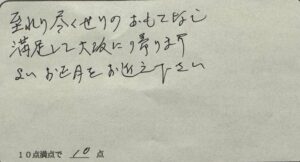 至れり尽くせりのおもてなし
満足して大阪に帰ります
よいお正月をお迎え下さい
10点満点で 10 点